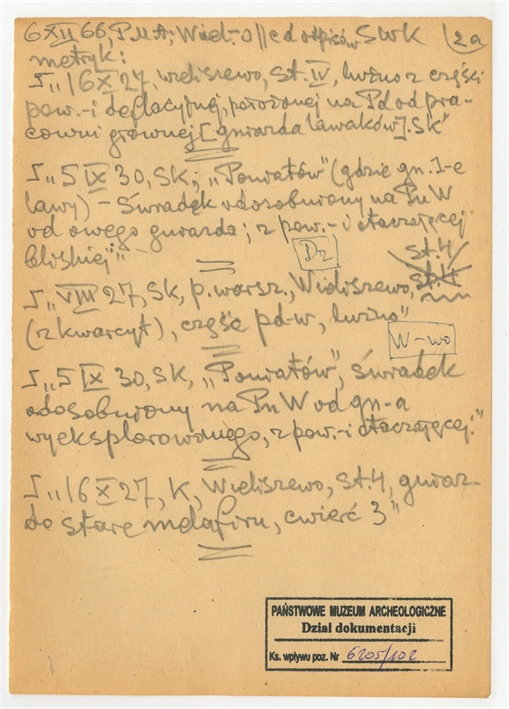 6 XII 66, P.M.A; Wiel.-o || c d odpisów SwK (2a
metryk:
I „16 X 27, wieliszewo, st. IV, luźno z części
pow.-i deflacyjnej, położonej na Pd od pra-
cowni głównej [gniazda lawaków]. SK"
I „5 IX 30, SK; „Poniatów" (gdzie gn. 1-e
lawy) – Świadek odosobniony na Pn W
od owego gniazda; z pow.-i otaczającej
bliskiej"
Dz
st. 4
I „VIII 27, SK, p. warsz., Wieliszewo,
(z kwarcyt), część pd-w, luźno"
W-wo
I „5 IX 30, SK, „Poniatów", świadek
odosobniony na Pn W od gn-a
wyeksplorowanego, z pow.-i otaczającej:"
I „16 X 27, K, Wieliszewo, st. 4, gniaz-
do stare melafiru, ćwierć 3"
PAŃSTWOWE MUZEUM ARCHEOLOGICZNE
Dział dokumentacji
Ks. wpływu poz. Nr 6205/102